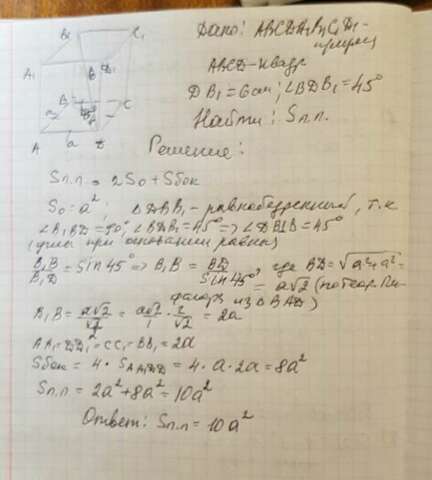 B₁ C₁
A₁ D₁
B C
a
A a D
Дано: ABCDA₁B₁C₁D₁ -
ABCD - квадр
DB₁ = 6 см; ∠BDB₁ = 45°
Найти: Sп.п.
Решение:
Sп.п. = 2S₀ + Sбок
S₀ = a²; △DBB₁ - равнобедренный, т.к
∠B₁BD = 90°, ∠BDB₁ = 45° => ∠DB₁B = 45°
(углы при основании равны)
B₁B/B₁D = sin 45° => B₁B = BD/sin 45°, где BD = √(a²+a²) =
= a√2 (по теор. Пи-
фагора из △BAD)
B₁B = a√2/(√2/2) = a√2/1 · 2/√2 = 2a
AA₁ = DD₁ = CC₁ = BB₁ = 2a
Sбок = 4 · SAA₁D₁D = 4 · a · 2a = 8a²
Sп.п = 2a² + 8a² = 10a²
Ответ: Sп.п = 10a²